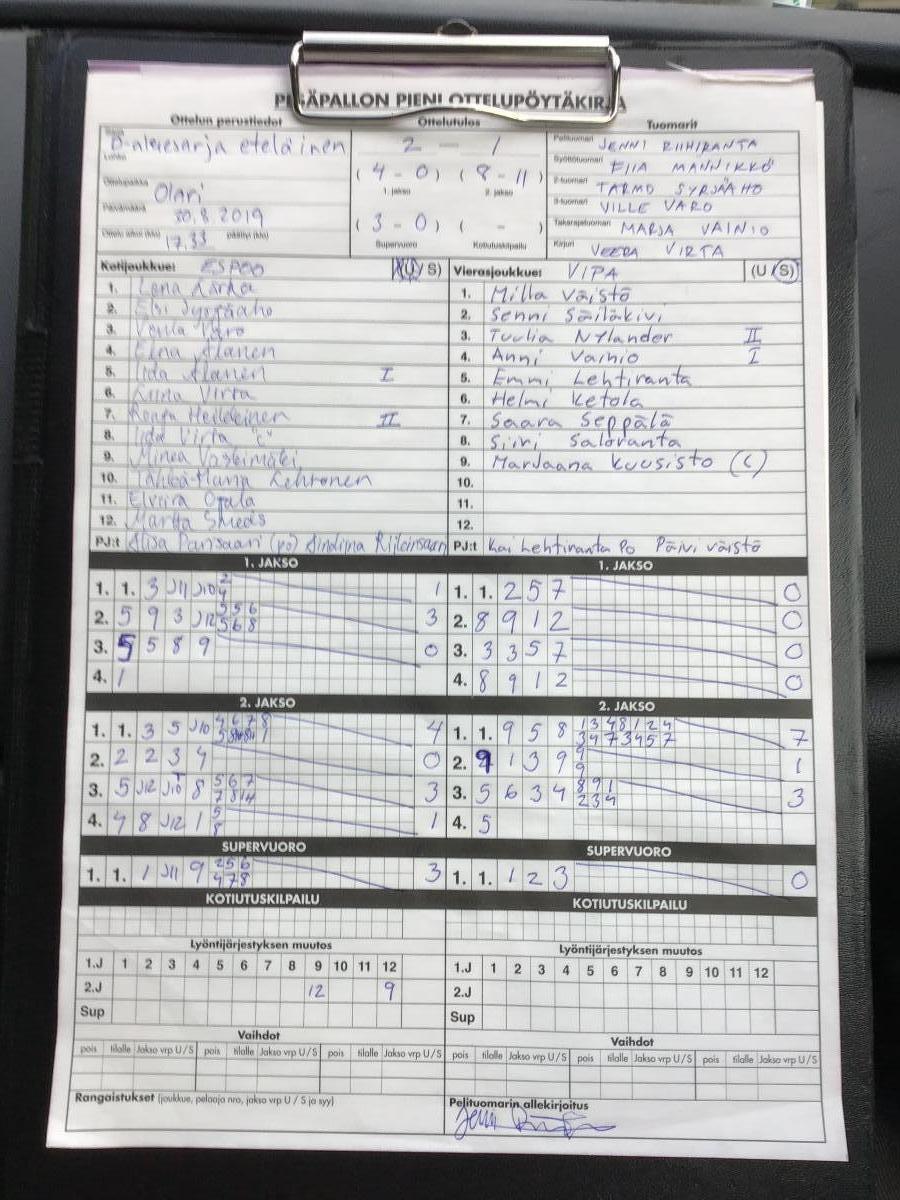 PESÄPALLON PIENI OTTELUPÖYTÄKIRJA
Ottelun perustiedot Ottelutulos Tuomarit
Lohko D-aluesarja eteläinen
Ottelupaikka Olari
Päivämäärä 30.8.2019
Ottelu alkoi (klo) 17.33 päättyi (klo)
2 - 1
(4 - 0) (8 - 11)
1. jakso 2. jakso
(3 - 0) ( - )
Supervuoro Kotiutuskilpailu
Pelituomari JENNI RIIHIRANTA
Syöttötuomari EIJA MANNIKKÖ
2-tuomari TARMO SYRJÄAHO
3-tuomari VILLE VARO
Takarajatuomari MARJA VAINIO
Kirjuri VEERA VIRTA
Kotijoukkue: ESPOO (U/S)
1. Lena Kärhä
2. Elsi Syrjäaho
3. Venla Varo
4. Elna Alanen
5. Iida Alanen I
6. Virta
7. Ronja Heikkinen II
8. Iida Virta "c"
9. Minea
10. Lehtonen
11. Elviira Ojala
12. Martta Smeds
PJ:t Alisa Pansaari (po)
Vierasjoukkue: VIPA (U/S)
1. Milla Väistö
2. Senni Säiläkivi
3. Tuulia Nylander II
4. Anni Vainio I
5. Emmi Lehtiranta
6. Helmi Ketola
7. Saara Seppälä
8. Siiri Saloranta
9. Marjaana Kuusisto (C)
10.
11.
12.
PJ:t Kai Lehtiranta Po Päivi Väistö
1. JAKSO
1. 1. 3 J11 J10 2 4 1
2. 5 9 3 J12 5 5 6 5 6 8 3
3. 5 5 8 9 0
4. 1
1. JAKSO
1. 1. 2 5 7 0
2. 8 9 1 2 0
3. 3 3 5 7 0
4. 8 9 1 2 0
2. JAKSO
1. 1. 3 5 J10 4 6 7 8 4
2. 2 2 3 4 0
3. 5 J12 J10 8 5 6 7 7 8 14 3
4. 4 8 J12 1 5 8 1
2. JAKSO
1. 1. 9 5 8 1 3 4 8 1 2 4 3 4 7 3 4 5 7 7
2. 9 1 3 9 9 9 1
3. 5 6 3 4 8 9 1 2 3 4 3
4. 5
SUPERVUORO
1. 1. 1 J11 9 2 5 6 4 7 8 3
SUPERVUORO
1. 1. 1 2 3 0
KOTIUTUSKILPAILU
KOTIUTUSKILPAILU
Lyöntijärjestyksen muutos
1.J 1 2 3 4 5 6 7 8 9 10 11 12
2.J 12 9
Sup
Lyöntijärjestyksen muutos
1.J 1 2 3 4 5 6 7 8 9 10 11 12
2.J
Sup
Vaihdot
pois tilalle Jakso vrp U/S pois tilalle Jakso vrp U/S pois tilalle Jakso vrp U/S
Vaihdot
pois tilalle Jakso vrp U/S pois tilalle Jakso vrp U/S pois tilalle Jakso vrp U/S
Rangaistukset (joukkue, pelaaja nro, jakso vrp U / S ja syy)
Pelituomarin allekirjoitus